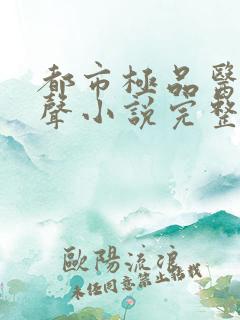 都市極品醫
聲小說完整
歐陽流浪
未經同意禁止轉載